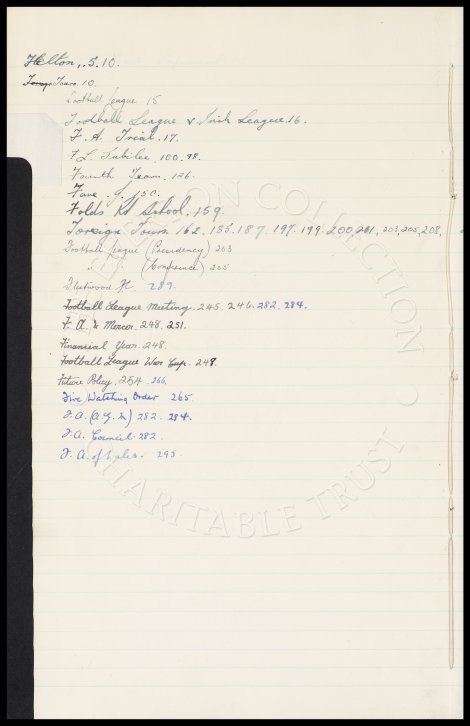 Felton, . 5.10.
Foreign Tours. 10.
Football League 15
Football League & Irish League. 16.
F. A. Trial. 17.
F L. Jubilee. 100. 98.
Fourth Team. 126.
J. 150.
Folds Rd School. 159.
Foreign Tours 162. 185. 187. 197. 199. 200, 201, 203, 205, 208,
Football League (Presidency) 203
" " (Conference) 205
Fleetwood FC 289.
Football League Meeting. 245. 246. 282. 284.
F. A. & Mercer. 248. 251.
Financial Year. 248.
Football League War Cup. 249.
Future Policy. 254. 266.
Fire Watching Order 265.
F. A. (A. G. M) 282. 284.
F. A. Council. 282.
F. A. of Wales. 295.
COLLECTION
CHARITABLE TRUST